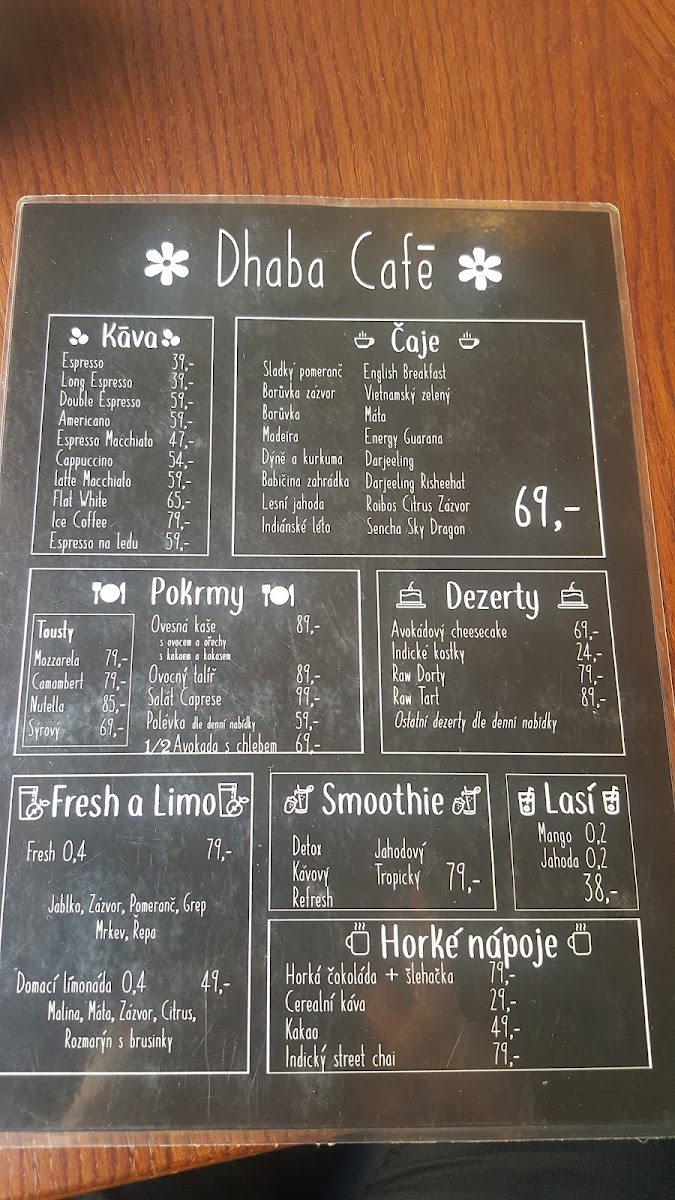 Dhaba Cafē
Kāva
Espresso 39,-
Long Espresso 39,-
Double Espresso 59,-
Americano 59,-
Espresso Macchiato 47,-
Cappuccino 54,-
Latte Macchiato 59,-
Flat White 65,-
Ice Coffee 79,-
Espresso na ledu 59,-
Čaje
Sladký pomeranč English Breakfast
Borůvka zázvor Vietnamský zelený
Borůvka Máta
Madeira Energy Guarana
Dýně a kurkuma Darjeeling
Babiččina zahrádka Darjeeling Risheehat
Lesní jahoda Roibos Citrus Zázvor
Indiánské léto Sencha Sky Dragon
69,-
Pokrmy
Tousty
Mozzarela 79,-
Camambert 79,-
Nutella 85,-
Sýrový 69,-
Ovesná kaše 89,-
s ovocem a ořechy
s kakaem a kokosem
Ovocný talíř 89,-
Salát Caprese 99,-
Polévka dle denní nabídky 59,-
1/2 Avokada s chlebem 69,-
Dezerty
Avokádový cheesecake 69,-
Indické kostky 24,-
Raw Dorty 79,-
Raw Tart 89,-
Ostatní dezerty dle denní nabídky
Fresh a Limo
Fresh 0,4 79,-
Jablko, Zázvor, Pomeranč, Grep
Mrkev, Řepa
Domací límonáda 0,4 49,-
Malina, Máta, Zázvor, Citrus,
Rozmarýn s brusinky
Smoothie
Detox Jahodový
Kávový Tropický 79,-
Refresh
Lasí
Mango 0,2
Jahoda 0,2
38,-
Horké nápoje
Horká čokoláda + šlehačka 79,-
Cerealní káva 29,-
Kakao 49,-
Indický street chai 79,-